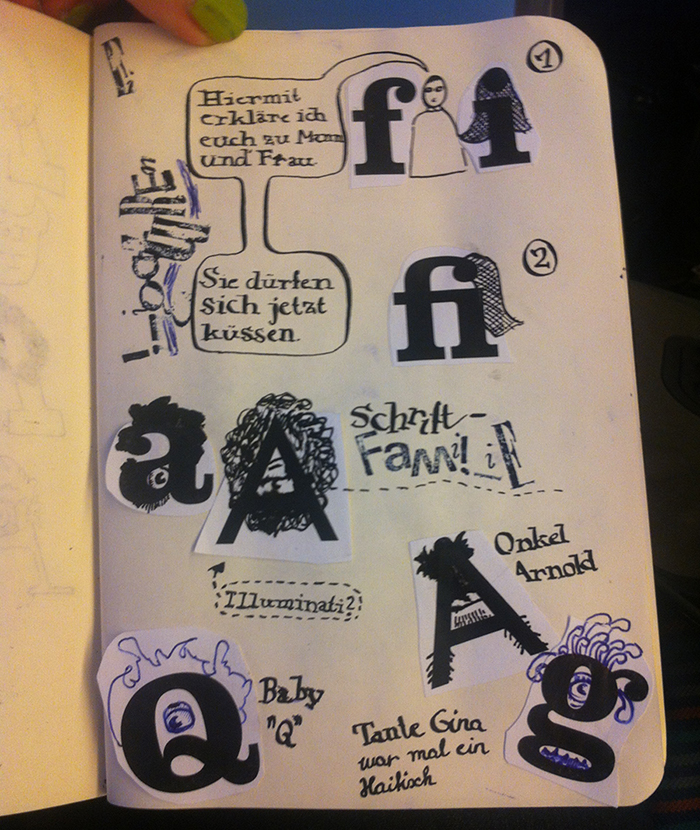 1
Hiermit
erkläre ich
euch zu Mann
und Frau.
f i
2
Sie dürfen
sich jetzt
küssen.
fi
a A
Schrift-
FamiliE
Illuminati?
A
Onkel
Arnold
Q
Baby
"Q"
g
Tante Gina
war mal ein
Haifisch